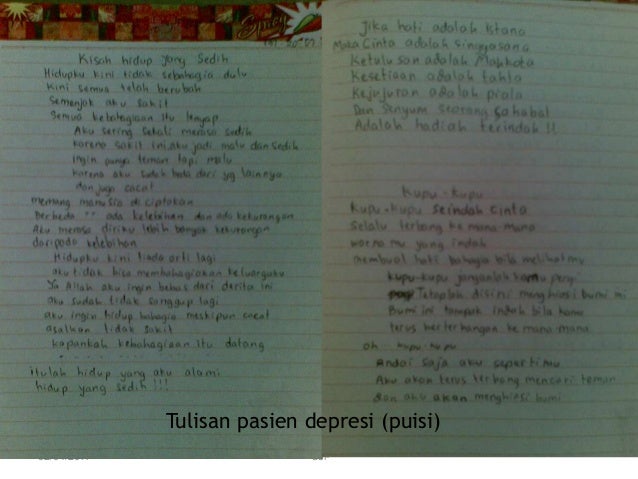 Spicy
Kisah hidup yang sedih
Hidupku kini tidak sebahagia dulu
Kini semua telah berubah
Semenjak aku sakit
Semua kebahagiaan itu lenyap
Aku sering sekali merasa sedih
karena sakit ini aku jadi malu dan sedih
ingin punya teman tapi malu
karena aku sudah beda dari yg lainnya
dan juga cacat
memang manusia di ciptakan
Berbeda " ada kelebihan dan ada kekurangan
Aku merasa diriku lebih banyak kekurangan
daripada kelebihan
Hidupku kini tiada arti lagi
aku tidak bisa membahagiakan keluargaku
Ya Allah aku ingin bebas dari derita ini
aku sudah tidak sanggup lagi
aku ingin hidup bahagia meskipun cacat
asalkan tidak sakit
kapankah kebahagiaan itu datang
itulah hidup yang aku alami
hidup yang sedih !!!
Jika hati adalah istana
Maka Cinta adalah singgasana
Ketulusan adalah Mahkota
Kesetiaan adalah tahta
Kejujuran adalah piala
Dan Senyum seorang sahabat
Adalah hadiah terindah !!
Kupu - kupu
Kupu-kupu seindah cinta
selalu terbang ke mana-mana
warna mu yang indah
membuat hati bahagia bila melihatmu
kupu-kupu janganlah kamu pergi
Tetaplah disini menghiasi bumi ini
Bumi ini tampak indah bila kamu
terus berterbangan ke mana-mana
oh kupu-kupu
Andai saja aku sepertimu
Aku akan terus terbang mencari teman
dan aku akan menghiasi bumi
Tulisan pasien depresi (puisi)